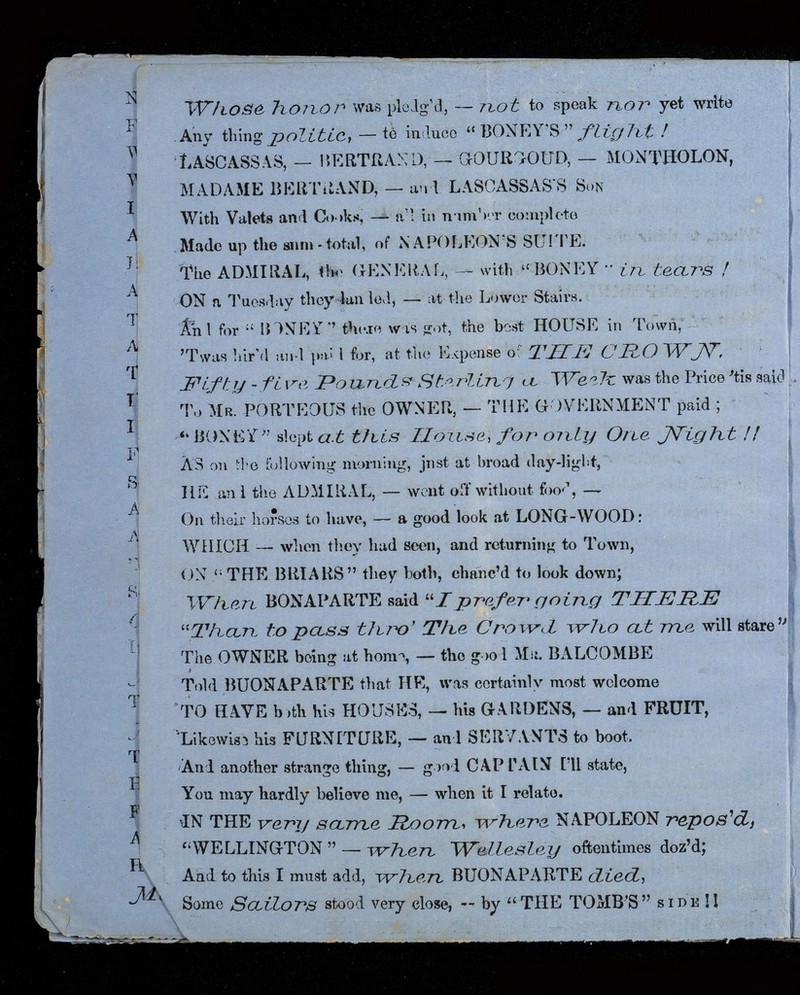 Whose honor was pledg'd, — not to speak nor yet write
Any thing politic, — to induce "BONEY'S" flight!
LASCASSAS, — BERTRAND, — GOURGOUD, — MONTHOLON,
MADAME BERTRAND, — and LASCASSAS'S SON
With Valets and Cooks, — all in number complete
Made up the sum-total, of NAPOLEON'S SUITE.
The ADMIRAL, the GENERAL, — with "BONEY" in tears!
ON a Tuesday they landed, — at the Lower Stairs.
And for "BONEY" there was got, the best HOUSE in Town,
'Twas hir'd and paid for, at the Expense of THE CROWN.
Fifty-five Pounds Sterling a Week was the Price 'tis said.
To MR. PORTEOUS the OWNER, — THE GOVERNMENT paid;
"BONEY" slept at this House, for only One Night!!
AS on the following morning, just at broad day-light,
HE and the ADMIRAL, — went off without food, —
On their horses to have, — a good look at LONG-WOOD:
WHICH — when they had seen, and returning to Town,
ON "THE BRIARS" they both, chanc'd to look down;
When BONAPARTE said "I prefer going THERE
"Than to pass thro' The Crowd who at me will stare"
The OWNER being at home, — the good MR. BALCOMBE
Told BUONAPARTE that HE, was certainly most welcome
TO HAVE both his HOUSES, — his GARDENS, — and FRUIT,
Likewise his FURNITURE, — and SERVANTS to boot.
And another strange thing, — good CAPTAIN I'll state,
You may hardly believe me, — when it I relate.
IN THE very same Room, where NAPOLEON repos'd,
"WELLINGTON" — when Wellesley oftentimes doz'd;
And to this I must add, when BUONAPARTE died,
Some Sailors stood very close, -- by "THE TOMB'S" SIDE!!